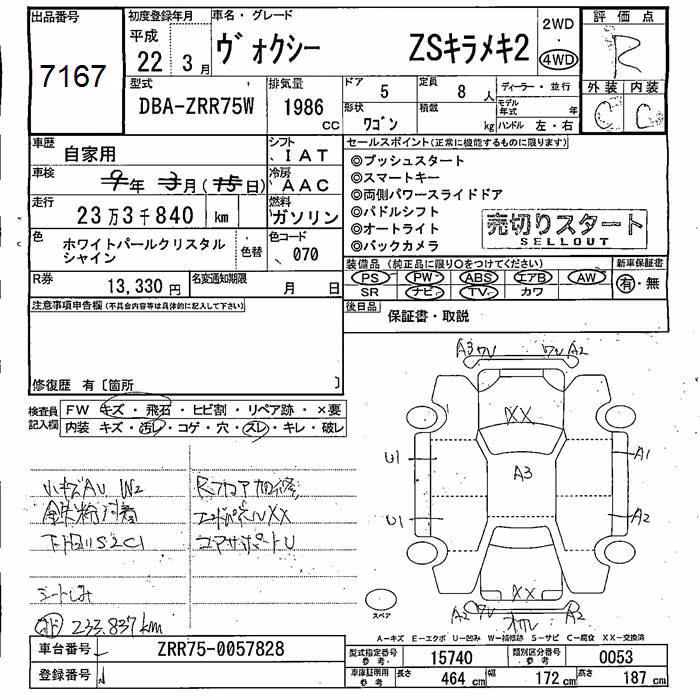 出品番号
7167
初度登録年月
平成
22 3月
車名・グレード
ヴォクシー ZSキラメキ2
2WD
・
4WD
評価点
R
外装 内装
C C
型式
DBA-ZRR75W
排気量
1986
cc
ドア
5
定員
8 人
形状
ワゴン
積載
kg
ディーラー・並行
モデル年式 年
ハンドル 左・右
車歴
自家用
シフト
、IAT
車検
9年 3月(15日)
冷房
、AAC
走行
23万3千840 km
燃料
ガソリン
色
ホワイトパールクリスタル
シャイン
色替
色コード
、070
R券
13,330 円
名変通知期限
月 日
セールスポイント(正常に機能するものに限ります)
◎プッシュスタート
◎スマートキー
◎両側パワースライドドア
◎パドルシフト
◎オートライト
◎バックカメラ
売切りスタート
SELLOUT
装備品(純正品に限り○をつけてください)
PS PW ABS エアB AW
SR ナビ TV カワ
新車保証書
有・無
後日品
保証書・取説
注意事項申告欄(不具合内容等は具体的に記入して下さい)
修復歴 有〔箇所 〕
検査員
記入欄
FW キズ・飛石・ヒビ割・リペア跡・×要
内装 キズ・汚レ・コゲ・穴・スレ・キレ・破レ
小キズAU W2
鉄粉付着
下廻りS2C1
シートしみ
233,837km
Rフロア加修
エンドパネルXX
コアサポートU
A3 ワレ
ワレ A2
XX
A3
U1
U1
A1
A2
XX
A2 ワレ
A2
スペア
A-キズ E-エクボ U-凹み W-補修跡 S-サビ C-腐食 XX-交換済
車台番号
ZRR75-0057828
登録番号
型式指定番号
参考、
15740
類別区分番号
参考、
0053
車庫証明用
参考、
長さ 464 cm
幅 172 cm
高さ 187 cm